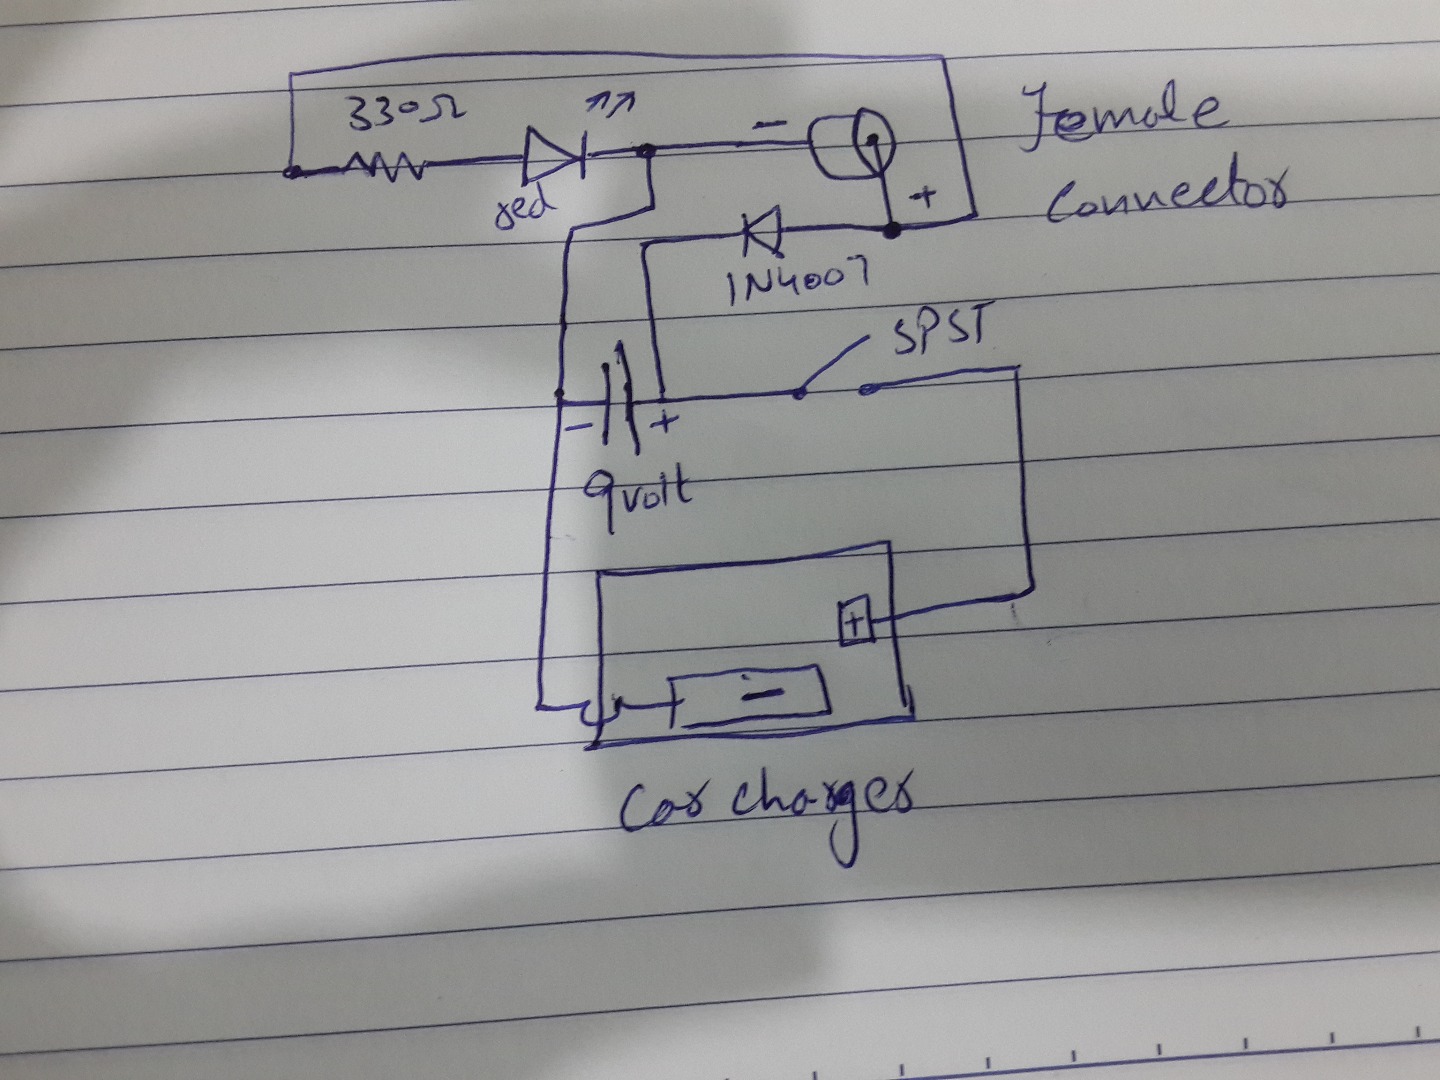 330Ω
Female
red
Connector
−
+
1N4007
SPST
− +
9volt
+
−
Car charger